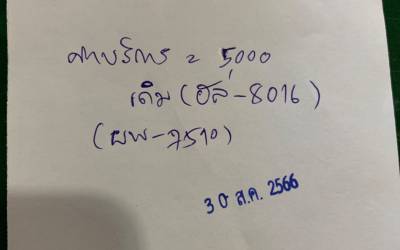 ค่าบริการ = 5000
เดิม (ฮล-8016)
(ผพ-7510)
30 ส.ค. 2566